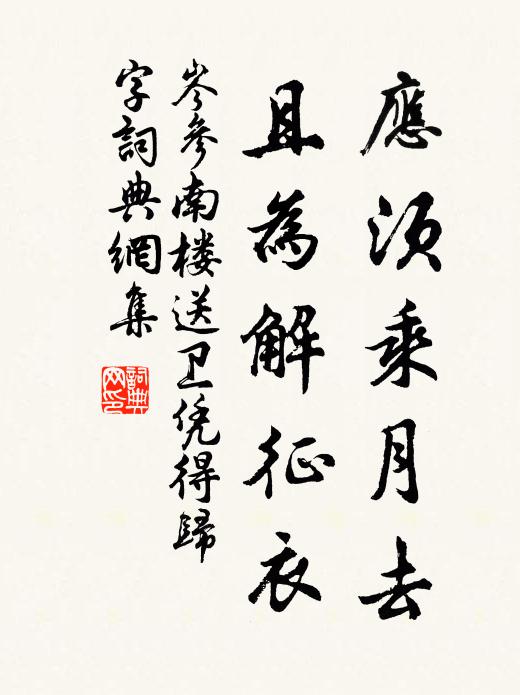 應須乘月去
且為解征衣
岑參南楼送卫凭得歸
字詞典網集
詞典网印